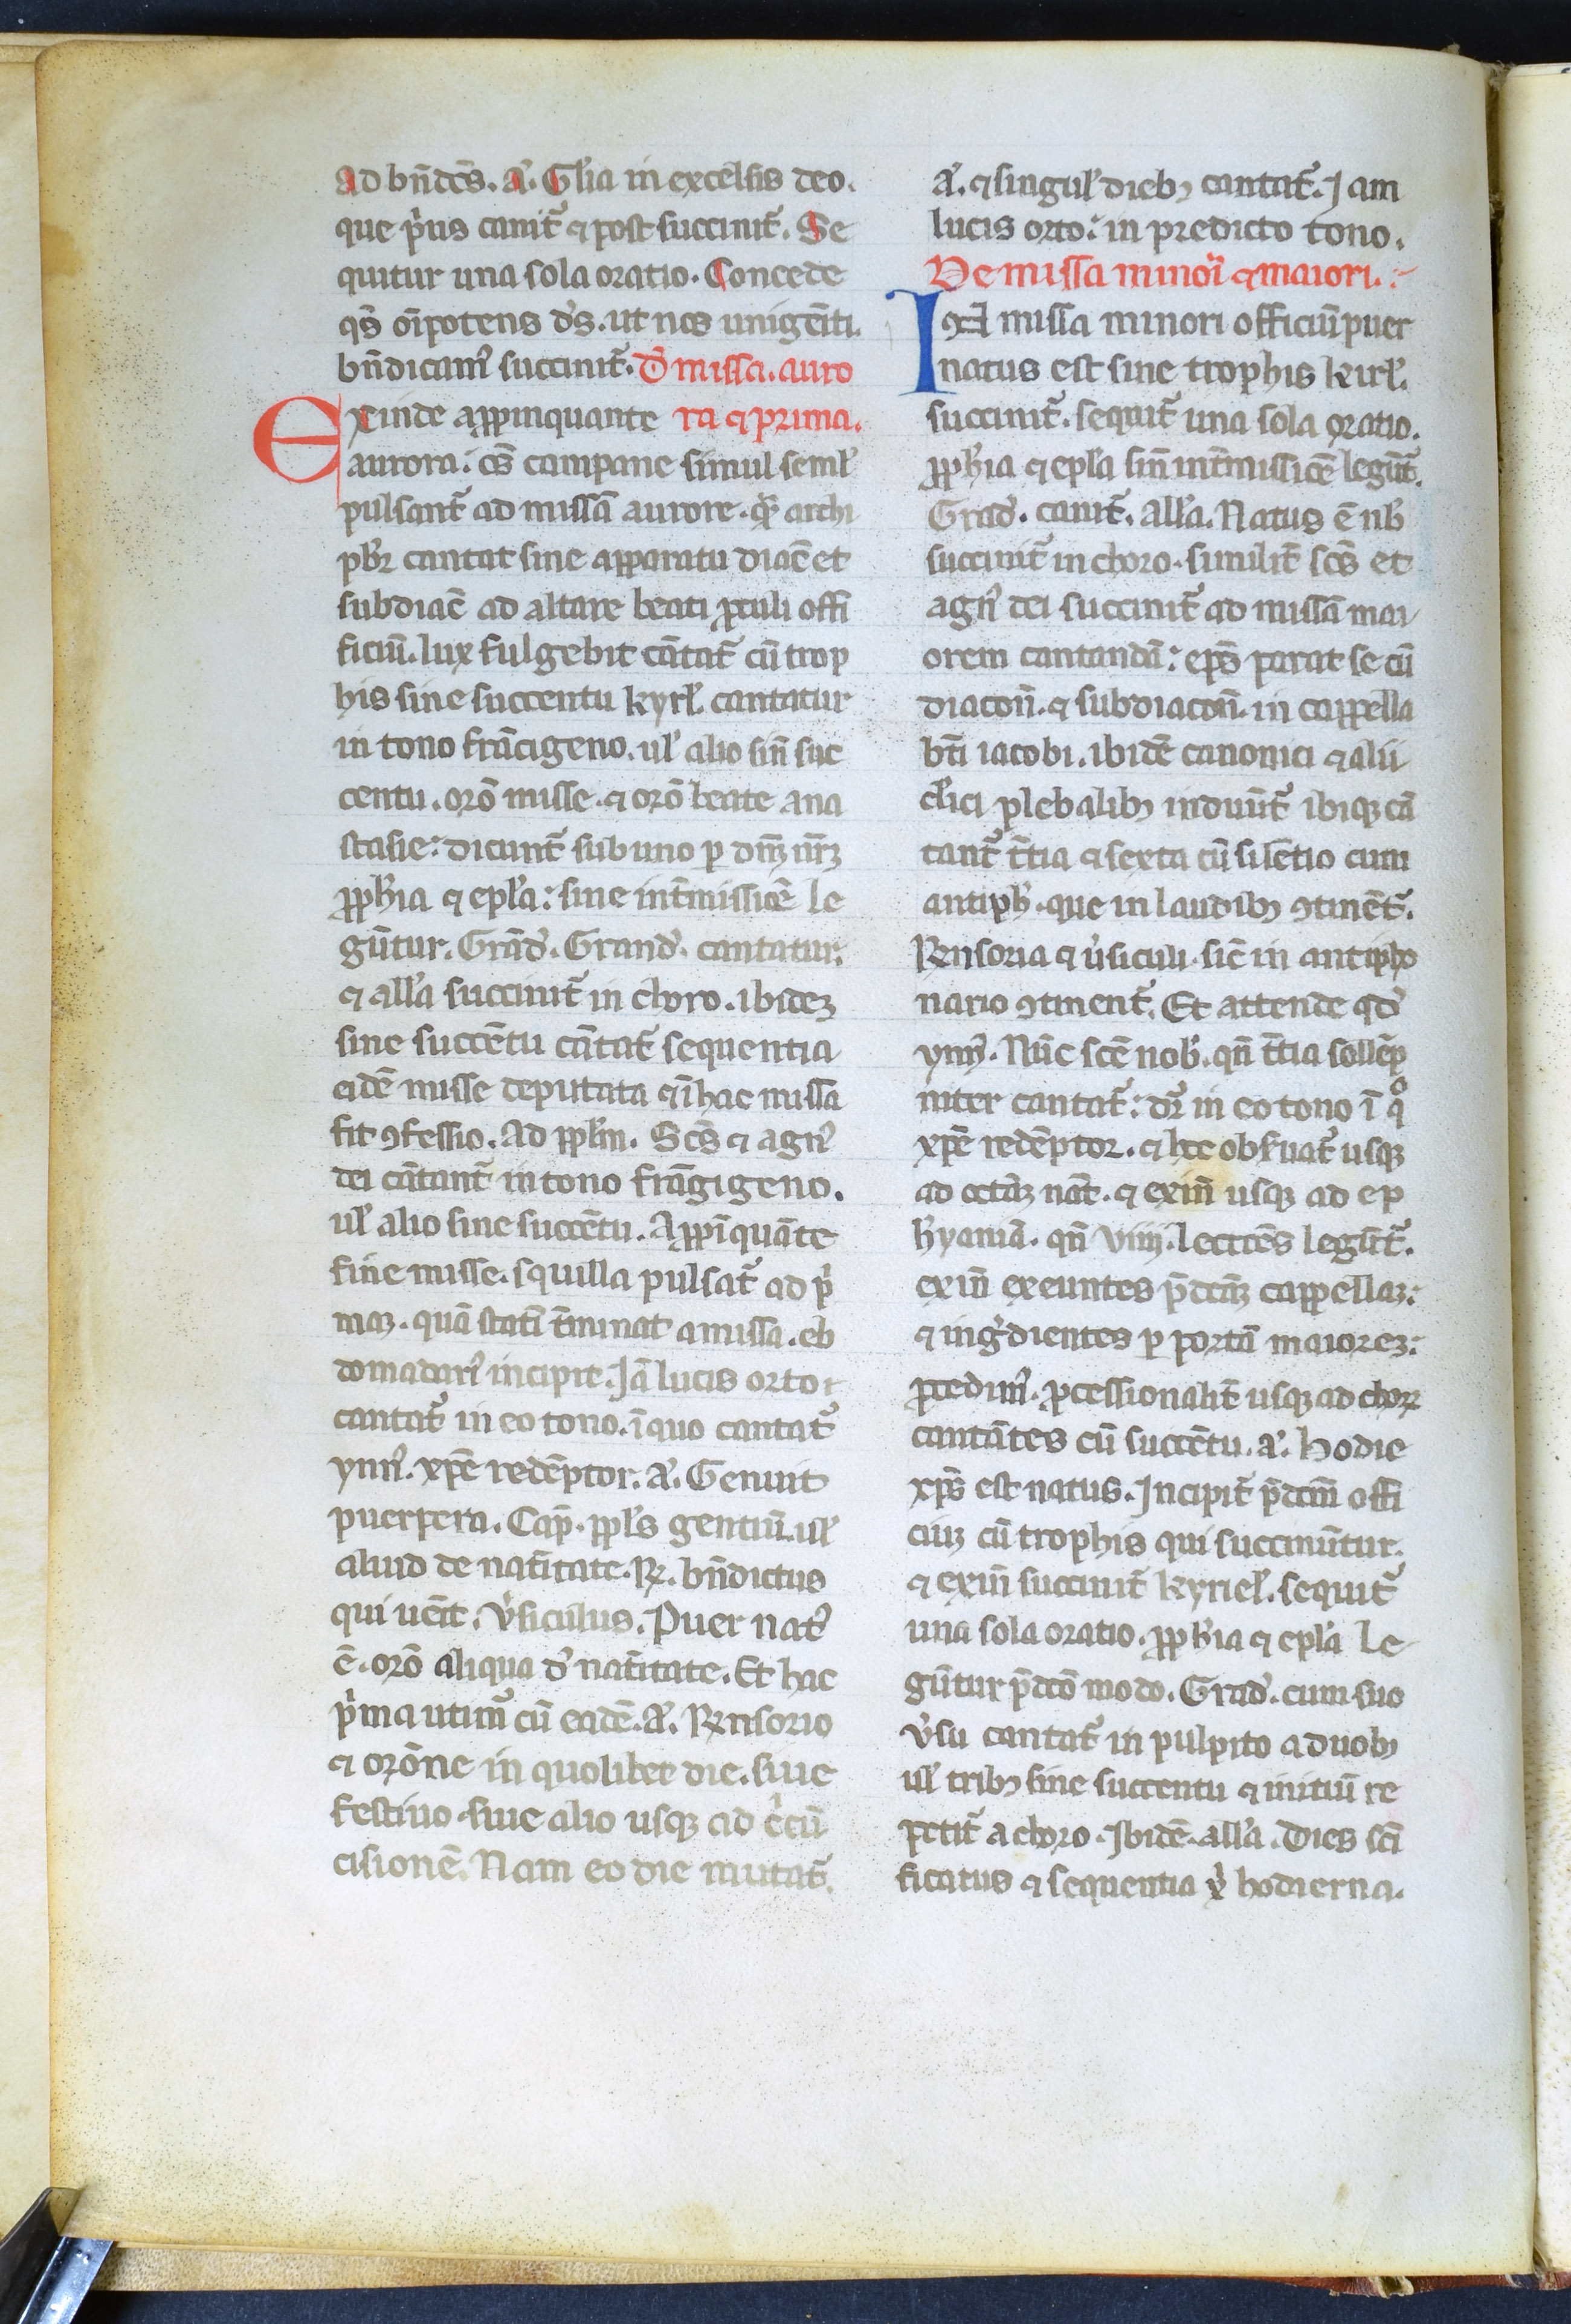 ad bn̄dcs̄. a᷒. Gl̄ia in excelsis deo.
que p̍us canit᷑ ⁊ post succinit᷑. Se
quitur una sola oratio. Concede
qs̄ om̄ipotens ds̄. ut nos unigēiti.
bn̄dicam᷒ succinit᷑. D̄ missa. auro
Exinde appinquante ra ⁊ prima.
aurora: os̄ campane simul seml̄
pulsant᷑ ad missā aurore. qͣ archi
pb̄r cantat sine apparatu diac̄ et
subdiac̄ ad altare beati pauli offi
ficiū. lux fulgebit cātat᷑ cū trop
his sine succentu kyrl̄. cantatur
in tono frācigeno. ul̄ alio sin̄ suc
centu. orō misse. ⁊ orō beate ana
stasie: dicunt᷑ sub uno p dn̄m nr̄m
ꝓph̄ia ⁊ epl̄a: sine int̄missiōe le
gūtur. Grād̄. Grand̄. cantatur:
⁊ all̄a succinit᷑ in choro. ibidem
sine succētu cātat᷑ sequentia
eidē misse deputata ⁊ ī hac missa
fit ꝯfessio. Ad ppl̄m. Scs̄ ⁊ agn᷒
dei cātant᷑ in tono frāgigeno.
ul̄ alio sine succētu. Appīquāte
fine misse. squilla pulsat᷑ ad p̍
maꝫ. quā statī t̄minat a missa. eb
domadari᷒ incipit. Jā lucis orto
cantat᷑ in eo tono. ī quo cantat᷑
ynn᷒. xp̄e redēptor. a᷒. Genuit
puerpera. Cap̄. ppl̄s gentiū. ul̄
aliud de nat̄itate. ℟. bn̄dictus
qui uēit. v̄siculus. Puer nat᷒
ē. orō aliqua d̄ nat̄itate. Et hac
p̍ma utim᷒ cū eadē. a᷒. ℟nsorio
⁊ orōne in quolibet die. siue
festiuo. siue alio usqꝫ ad c̍cū
cisionē. Nam eo die mutat᷑.
a᷒. ⁊ singul̄ diebꝫ cantat᷑. Jam
lucis orto: in predicto tono.
De missa minoī ⁊ maiori.
In missa minori officiū puer
natus est sine trophis kirl̄.
succinit᷑. sequit᷑ una sola oratio.
ꝓph̄ia ⁊ epl̄a sin̄ int̄missiōe legūt᷑.
Grad̄. canit᷑. all̄a. Natus ē nb̄
succinit᷑ in choro. similit̄ scs̄ et
agn᷒ dei succinit᷑ ad missā mai
orem cantandā: eps̄ parat se cū
diacon̄. ⁊ subdiacon̄. in cappella
bt̄i iacobi. ibidē canonici ⁊ alii
cl̄ici plebalibꝫ induūt᷑ ibiqꝫ cā
tant᷑ t̄tia ⁊ sexta cū silētio cum
antiph̄. que in laudibꝫ ꝯtinēt᷑.
℟nsoria ⁊ v̄siculi. sic̄ in antipho
nario ꝯtinent᷑. Et attende qd̄
ynn᷒. Nūc scē nob̄. qn̄ t̄tia sollēp
niter cantat᷑: dr̄ in eo tono ī qͦ
xp̄e redēptor. ⁊ hec obs̄uat᷑ usqꝫ
ad octāꝫ nat̄. ⁊ exin̄ usqꝫ ad ep
h̄yaniā. qn̄ viiij. lectiōes legūt᷑.
exin̄ exeuntes p̄dctāꝫ cappellaꝫ:
⁊ ing̍dientes p portā maioreꝫ:
ꝓcedim᷒. ꝓcessionalit̄ usqꝫ ad choꝝ
cantātes cū succētu. a᷒. Hodie
xp̄s est natus. Incipit᷑ p̄dctm̄ offi
ciuꝫ cū trophis qui succinūtur.
⁊ exin̄ succinit᷑ kyriel̄. sequit᷑
una sola oratio. ꝓph̄ia ⁊ epl̄a le
gūtur p̄dctō modo. Grad̄. cum suo
v̄su cantat᷑ in pulpito a duobꝫ
ul̄ tribꝫ sine succentu ⁊ initiū re
petit᷑ a choro. Ibidē. all̄a. Dies scī
ficatus ⁊ sequentia hodierna.